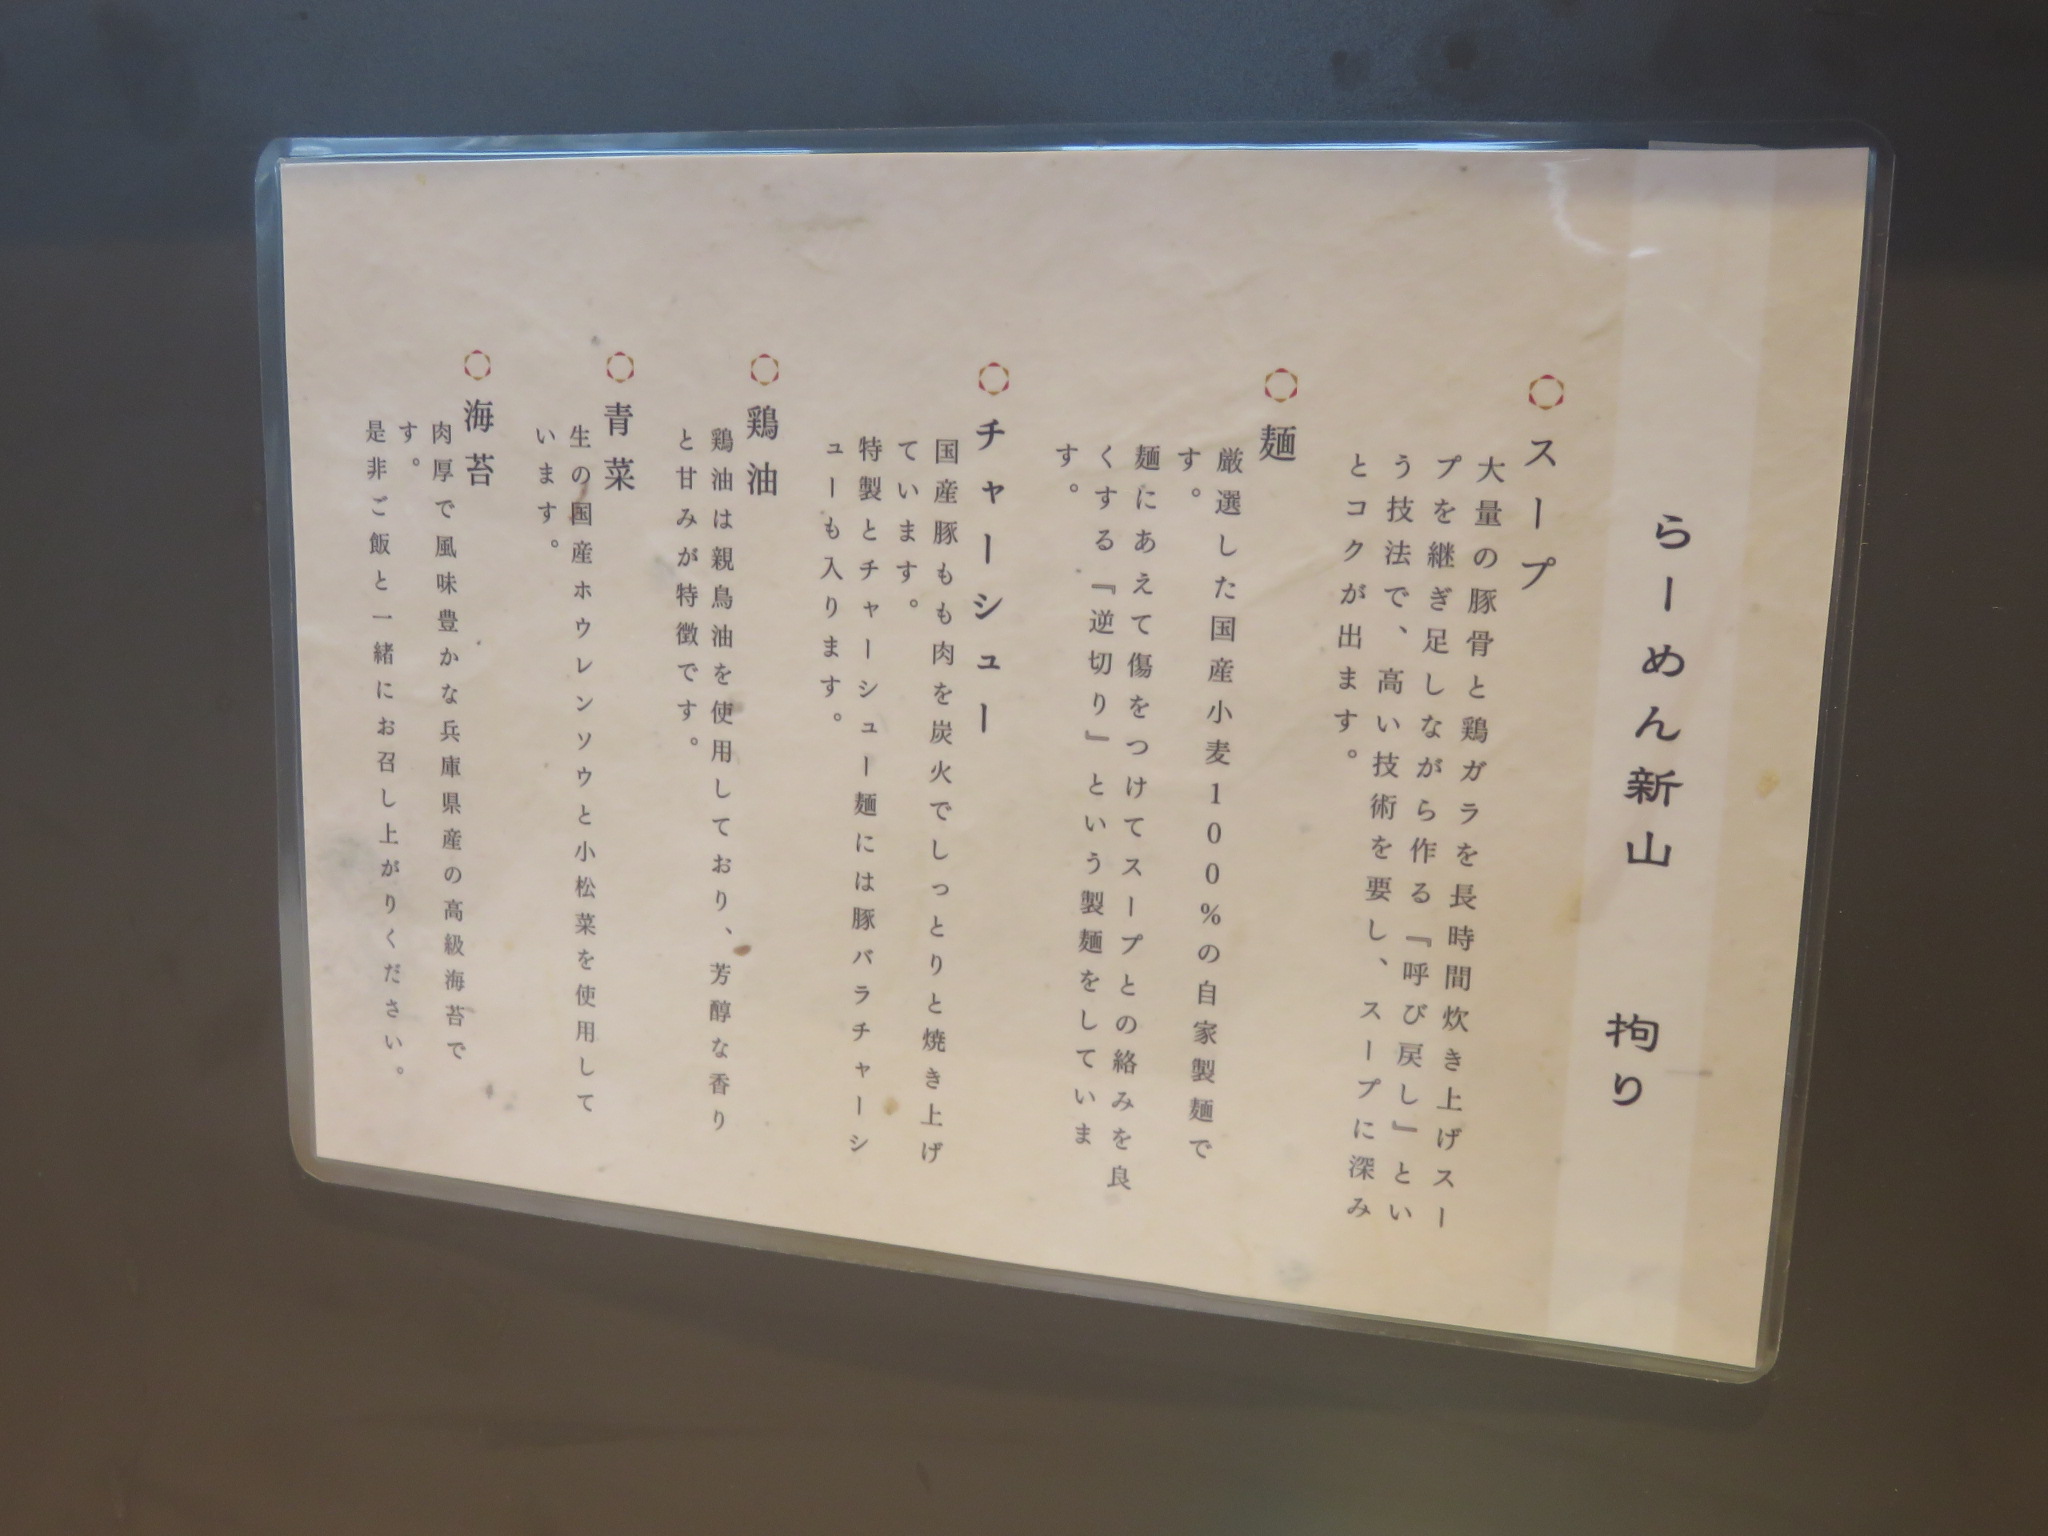 らーめん新山　拘り
スープ
大量の豚骨と鶏ガラを長時間炊き上げスー
プを継ぎ足しながら作る『呼び戻し』とい
う技法で、高い技術を要し、スープに深み
とコクが出ます。
麺
厳選した国産小麦100%の自家製麺で
す。
麺にあえて傷をつけてスープとの絡みを良
くする『逆切り』という製麺をしていま
す。
チャーシュー
国産豚もも肉を炭火でしっとりと焼き上げ
ています。
特製とチャーシュー麺には豚バラチャーシ
ューも入ります。
鶏油
鶏油は親鳥油を使用しており、芳醇な香り
と甘みが特徴です。
青菜
生の国産ホウレンソウと小松菜を使用して
います。
海苔
肉厚で風味豊かな兵庫県産の高級海苔で
す。
是非ご飯と一緒にお召し上がりください。